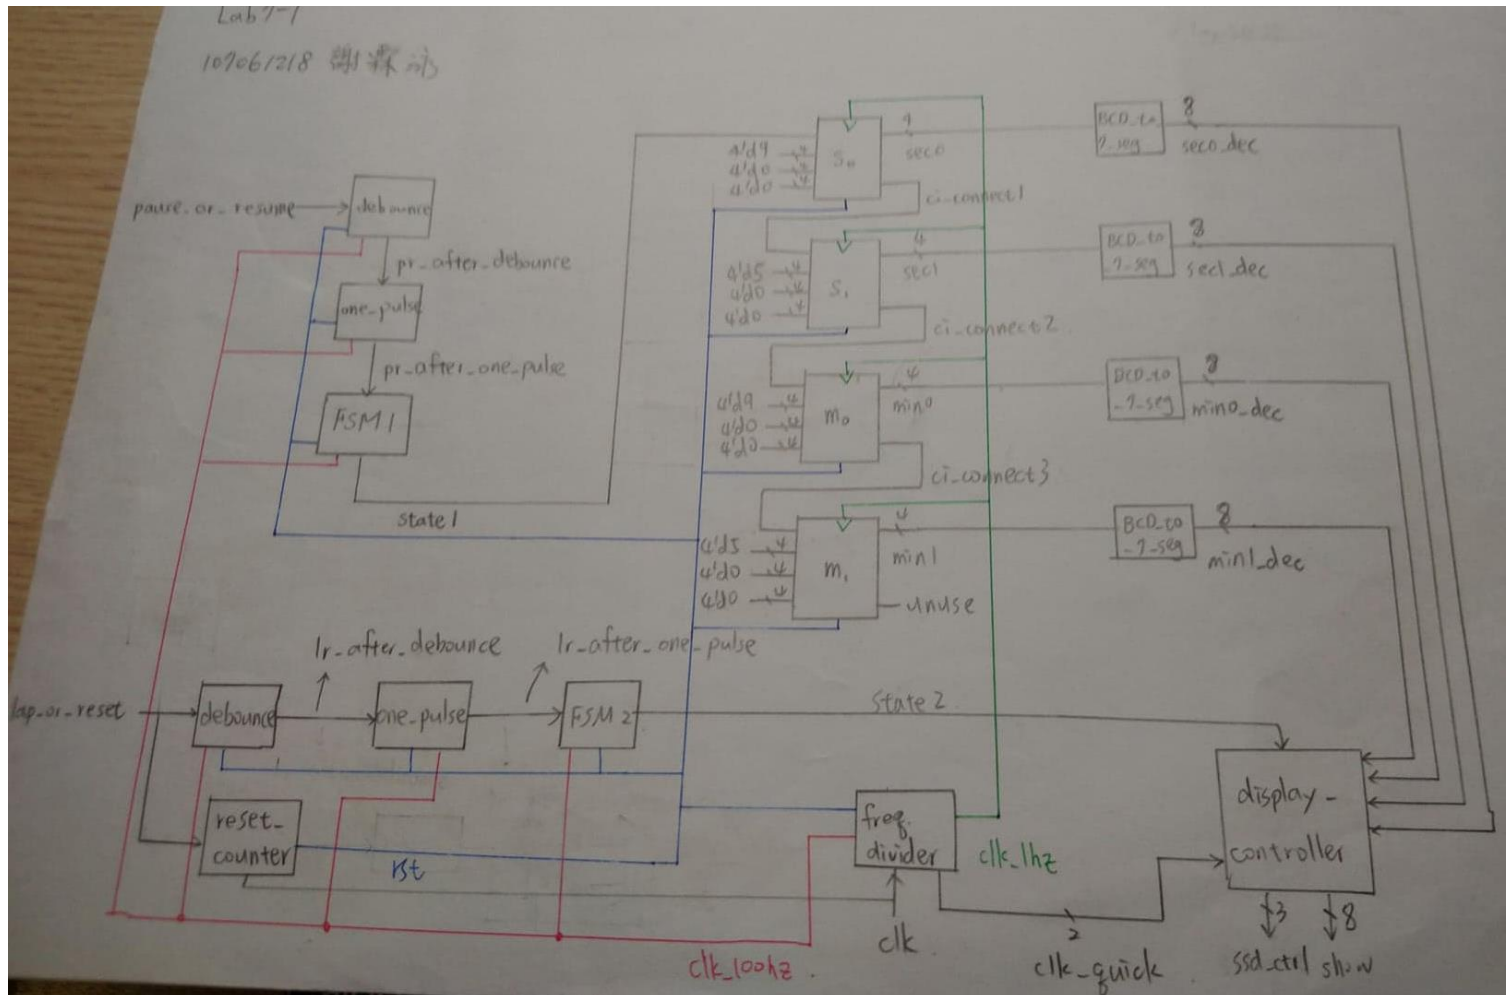 Lab7-1
107061218 謝霖泳
pause_or_resume
debounce
pr_after_debounce
one_pulse
pr_after_one_pulse
FSM1
state1
4'd9 4
4'd0 4
4'd0 4
S0
4
sec0
ci_connect1
BCD_to
_7_seg
8
sec0_dec
4'd5 4
4'd0 4
4'd0 4
S1
4
sec1
ci_connect2
BCD_to
_7_seg
8
sec1_dec
4'd9 4
4'd0 4
4'd0 4
m0
4
min0
ci_connect3
BCD_to
_7_seg
8
min0_dec
4'd5 4
4'd0 4
4'd0 4
m1
4
min1
unuse
BCD_to
_7_seg
8
min1_dec
lap_or_reset
debounce
lr_after_debounce
one_pulse
lr_after_one_pulse
FSM2
state2
reset_
counter
rst
freq.
divider
clk_1hz
clk_100hz
clk
2
clk_quick
display_
controller
3
8
ssd_ctrl show